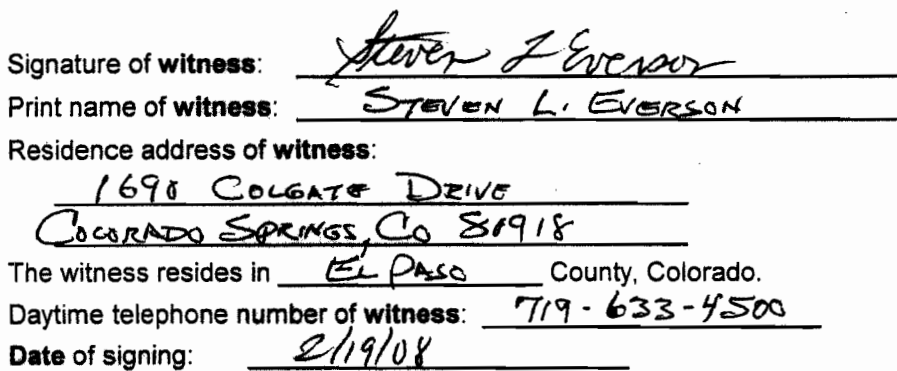 Signature of witness: Steven L Everson
Print name of witness: STEVEN L. EVERSON
Residence address of witness:
1698 COLGATE DRIVE
COLORADO SPRINGS, CO 80918
The witness resides in EL PASO County, Colorado.
Daytime telephone number of witness: 719-633-4500
Date of signing: 2/19/08